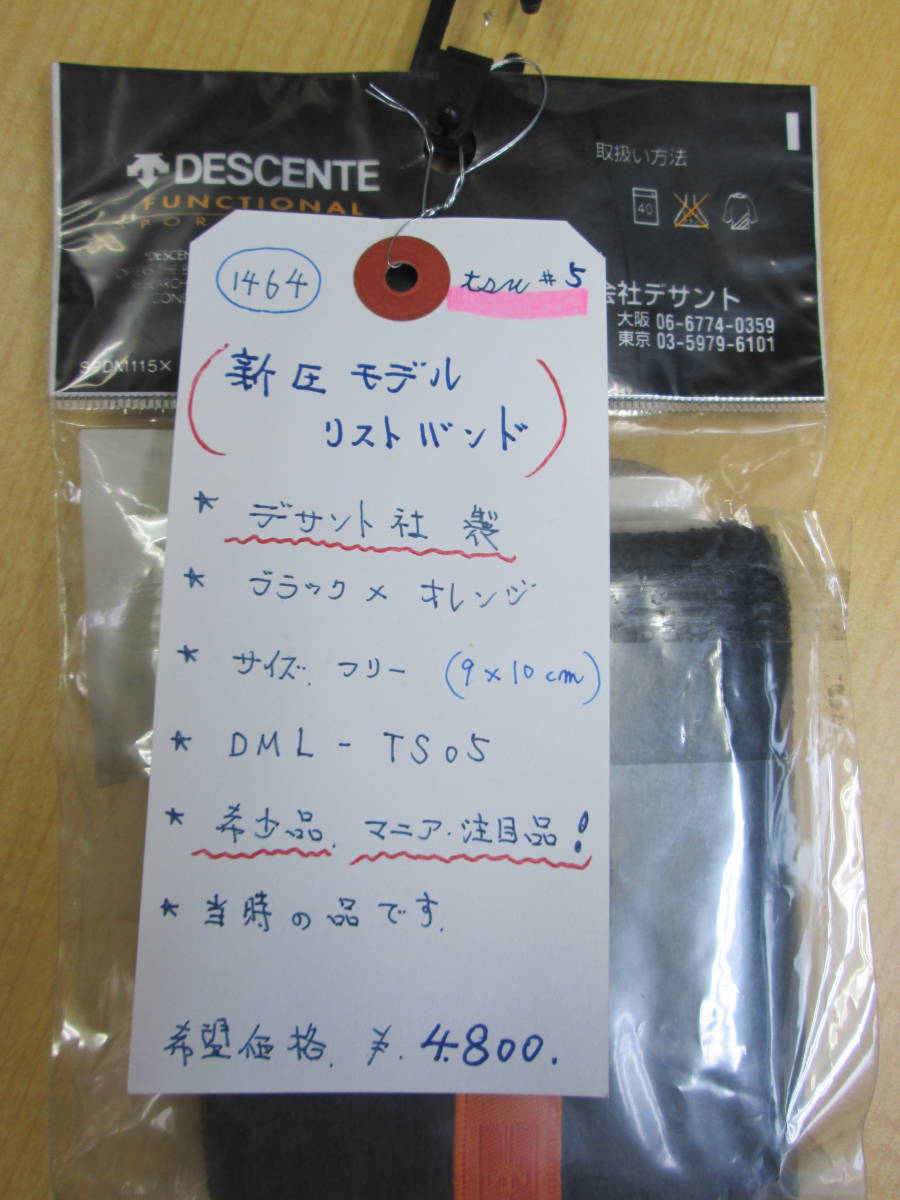 DESCENTE
FUNCTIONAL
取扱い方法
40
会社デサント
大阪 06-6774-0359
東京 03-5979-6101
1464
tsu #5
(新庄モデル
リストバンド)
* デサント社 製
* ブラック × オレンジ
* サイズ. フリー (9×10cm)
* DML-TS05
* 希少品. マニア・注目品!
* 当時の品です.
希望価格. ¥.4.800.